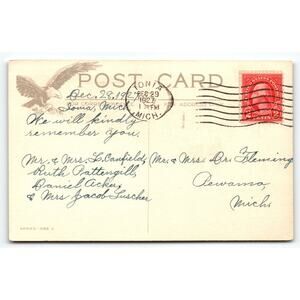 POST CARD
Dec. 28, 1927
Ionia, Mich.
IONIA
DEC 29
1 PM
1927
MICH.
We will kindly
remember you.
Mr. & Mrs. L. Canfield,
Ruth Pattengill,
Daniel Acker,
& Mrs Jacob Luscher
Mr. & Mrs. Dr. Fleming
Pewamo,
Mich.